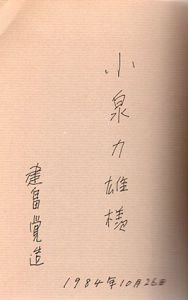 小泉力雄様
建畠覚造
1984年10月26日